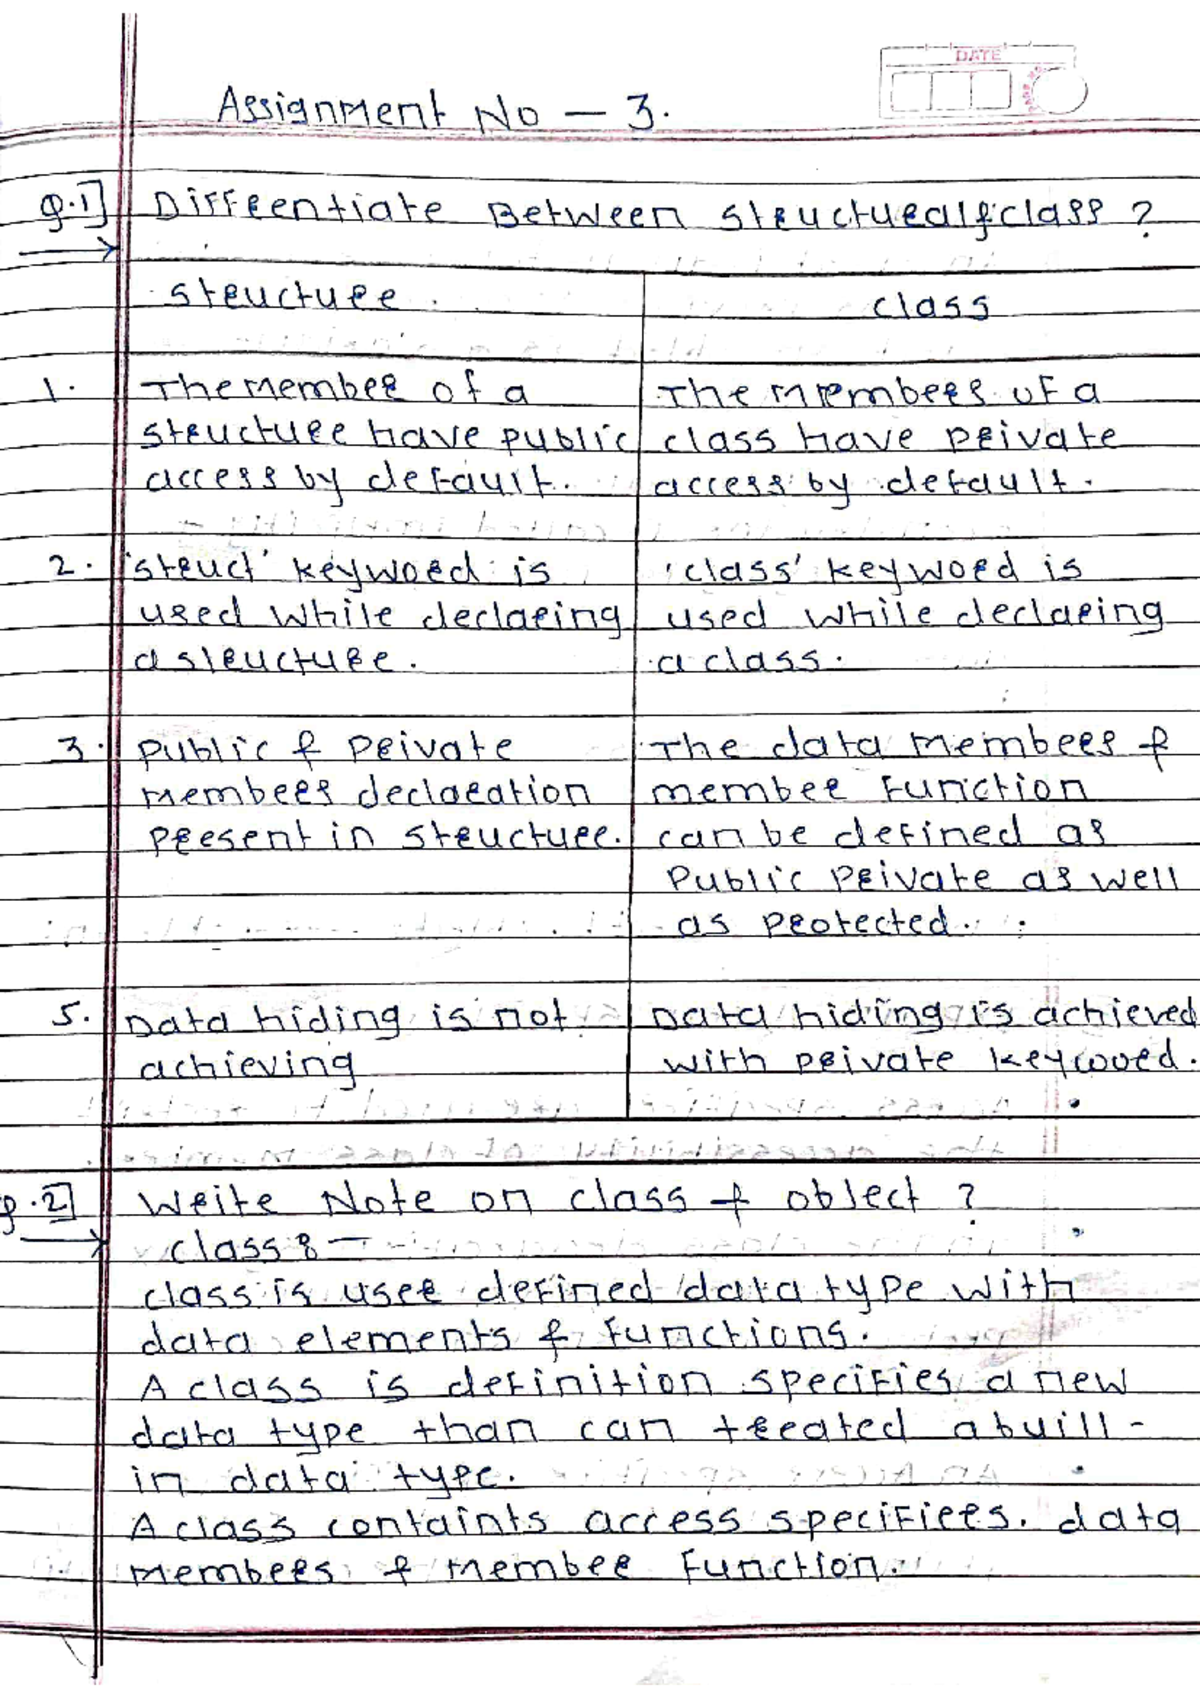 DATE
Assignment No - 3.
Q.1] Diffeentiate Between structureal & class ?
structure. class
1. The Member of a The members of a
structure have public class have private
access by default. access by default.
2. 'struct' keyword is 'class' keyword is
used while declaring used while declaring
a structure. a class.
3. public & private The data members &
members declaration member function
present in structure. can be defined as
Public private as well
as protected.
5. Data hiding is not Data hiding is achieved
achieving with private keyword.
Q.2] Write Note on class & object ?
class :-
class is user defined data type with
data elements & functions.
A class is definition specifies a new
data type than can treated a buill-
in data type.
A class containts access specifiers. data
members & member function.